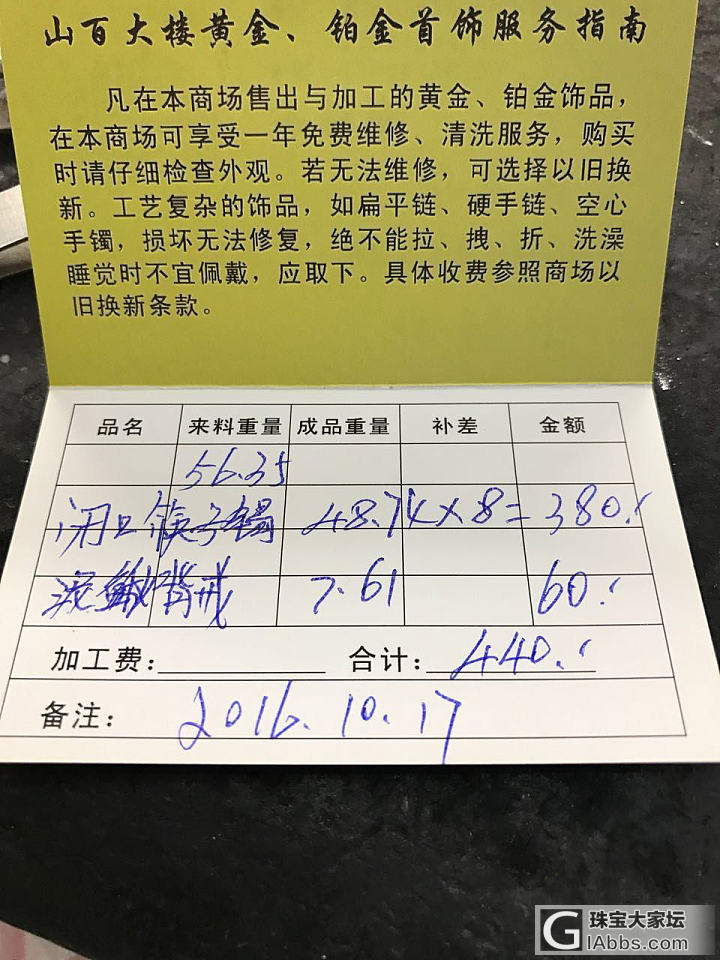 山百大楼黄金、铂金首饰服务指南
凡在本商场售出与加工的黄金、铂金饰品，
在本商场可享受一年免费维修、清洗服务，购买
时请仔细检查外观。若无法维修，可选择以旧换
新。工艺复杂的饰品，如扁平链、硬手链、空心
手镯，损坏无法修复，绝不能拉、拽、折、洗澡
睡觉时不宜佩戴，应取下。具体收费参照商场以
旧换新条款。
品名 来料重量 成品重量 补差 金额
56.35
闭口筷子镯 48.74×8=380.
背戒 7.61 60.
加工费： 合计：440.
备注： 2016.10.17
珠宝大家坛
GIAbbs.com